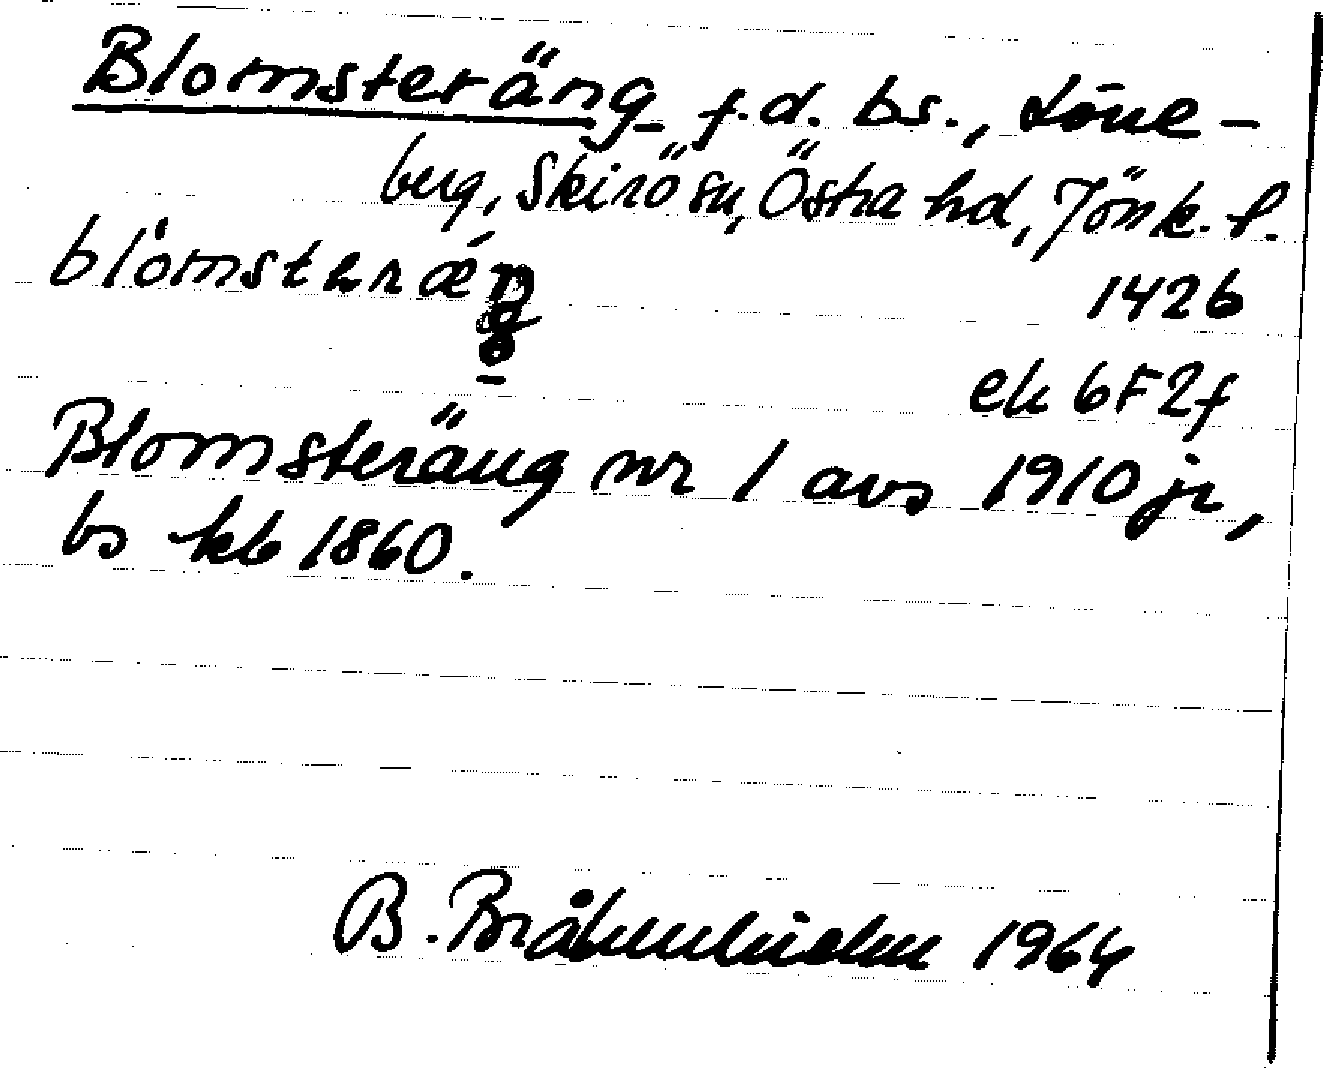 Blomsteräng f.d. bs., Löne-
berg, Skirö sn, Östra hd, Jönk. l.
blòmsteræ̀ŋ 1426
ek 6F2f
Blomsteräng nr 1 avs 1910 jr,
bs kb 1860.
B. 1964